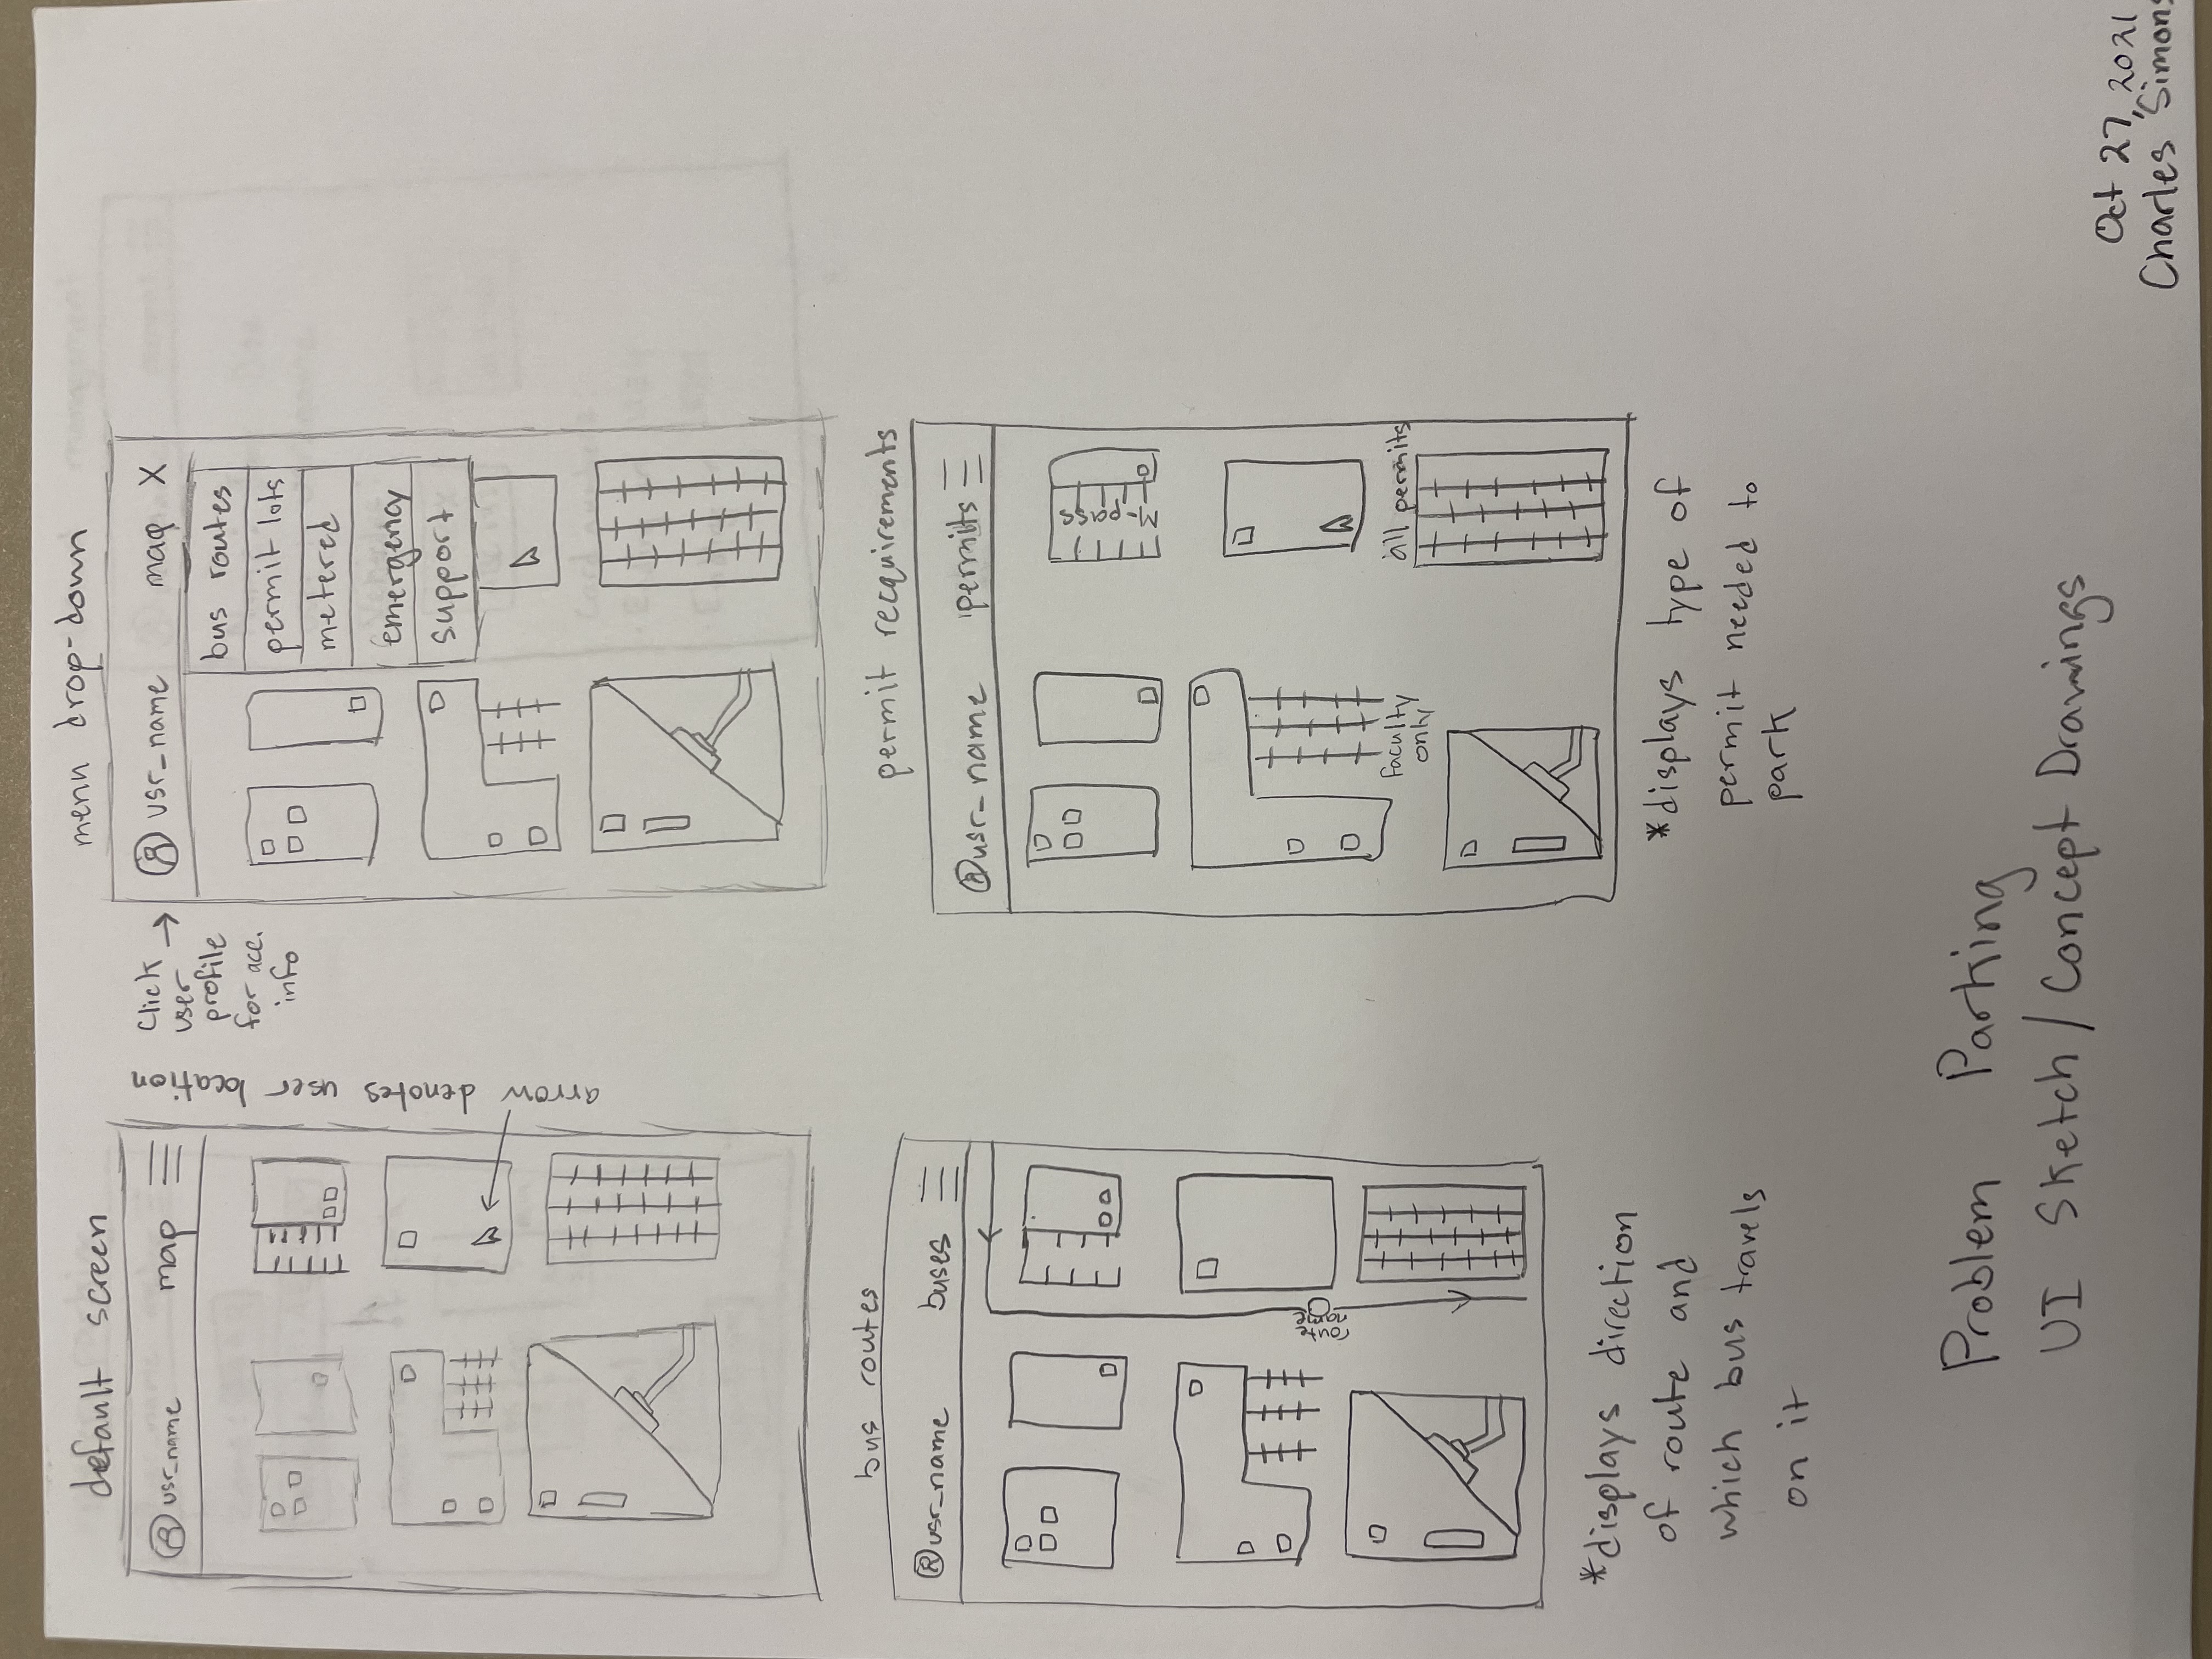 default screen
usr_name map
arrow denotes user location
menu drop-down
Click
user
profile
for acc.
info
usr_name map X
bus routes
permit lots
metered
emergency
support
bus routes
usr_name buses
route
name
*displays direction
of route and
which bus travels
on it
permit recquirements
usr_name permits
M-pass
Faculty
only
all permits
*displays type of
permit needed to
park
Problem Parking
UI Sketch/Concept Drawings
Oct 27, 2021
Charles Simons